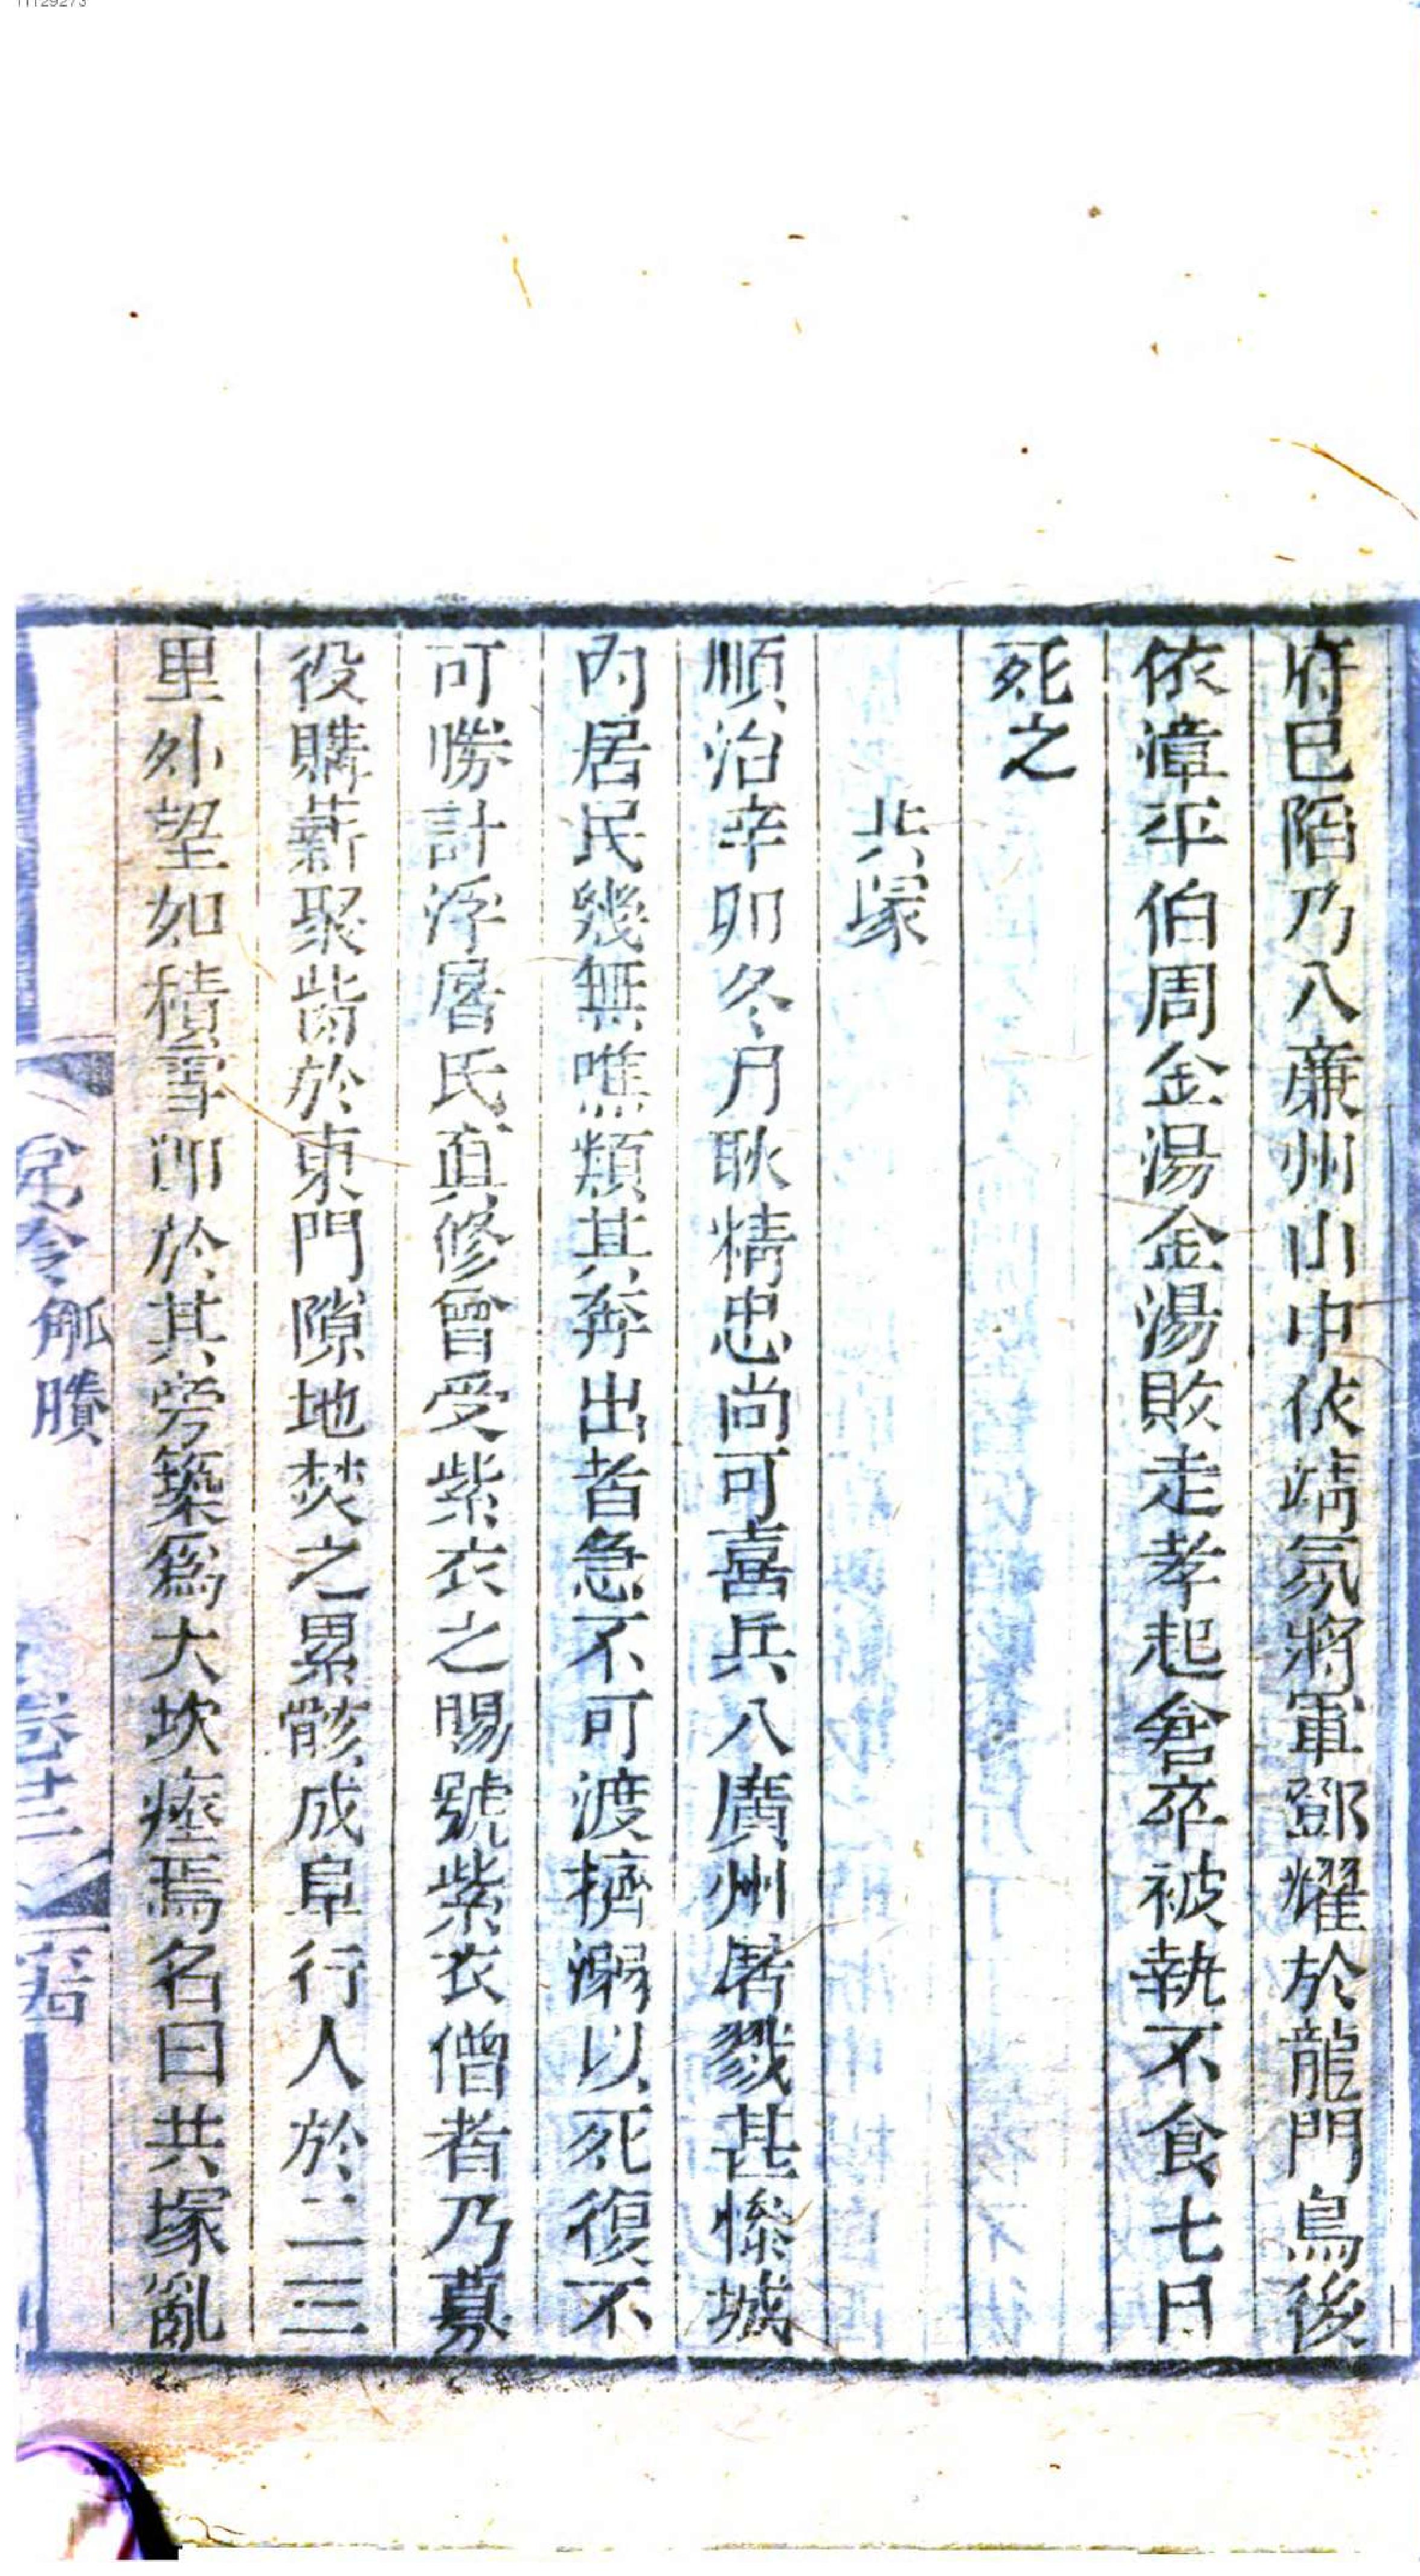 府巳陷乃入亷州山中依靖氛將軍鄧耀於龍門島後
依漳平伯周金湯金湯敗走孝起倉卒被執不食七日
死之
共塚
順治辛卯冬月耿精忠尚可喜兵入廣州屠戮甚慘城
內居民幾無噍類其奔出者急不可渡擠溺以死復不
可勝計浮屠氏眞修曾受紫衣之賜號紫衣僧者乃募
役購薪聚胔於東門隙地焚之累骸成阜行人於二三
里外望如積雪卽於其旁築爲大坎痙焉名曰共塚亂
觚賸
卷十二